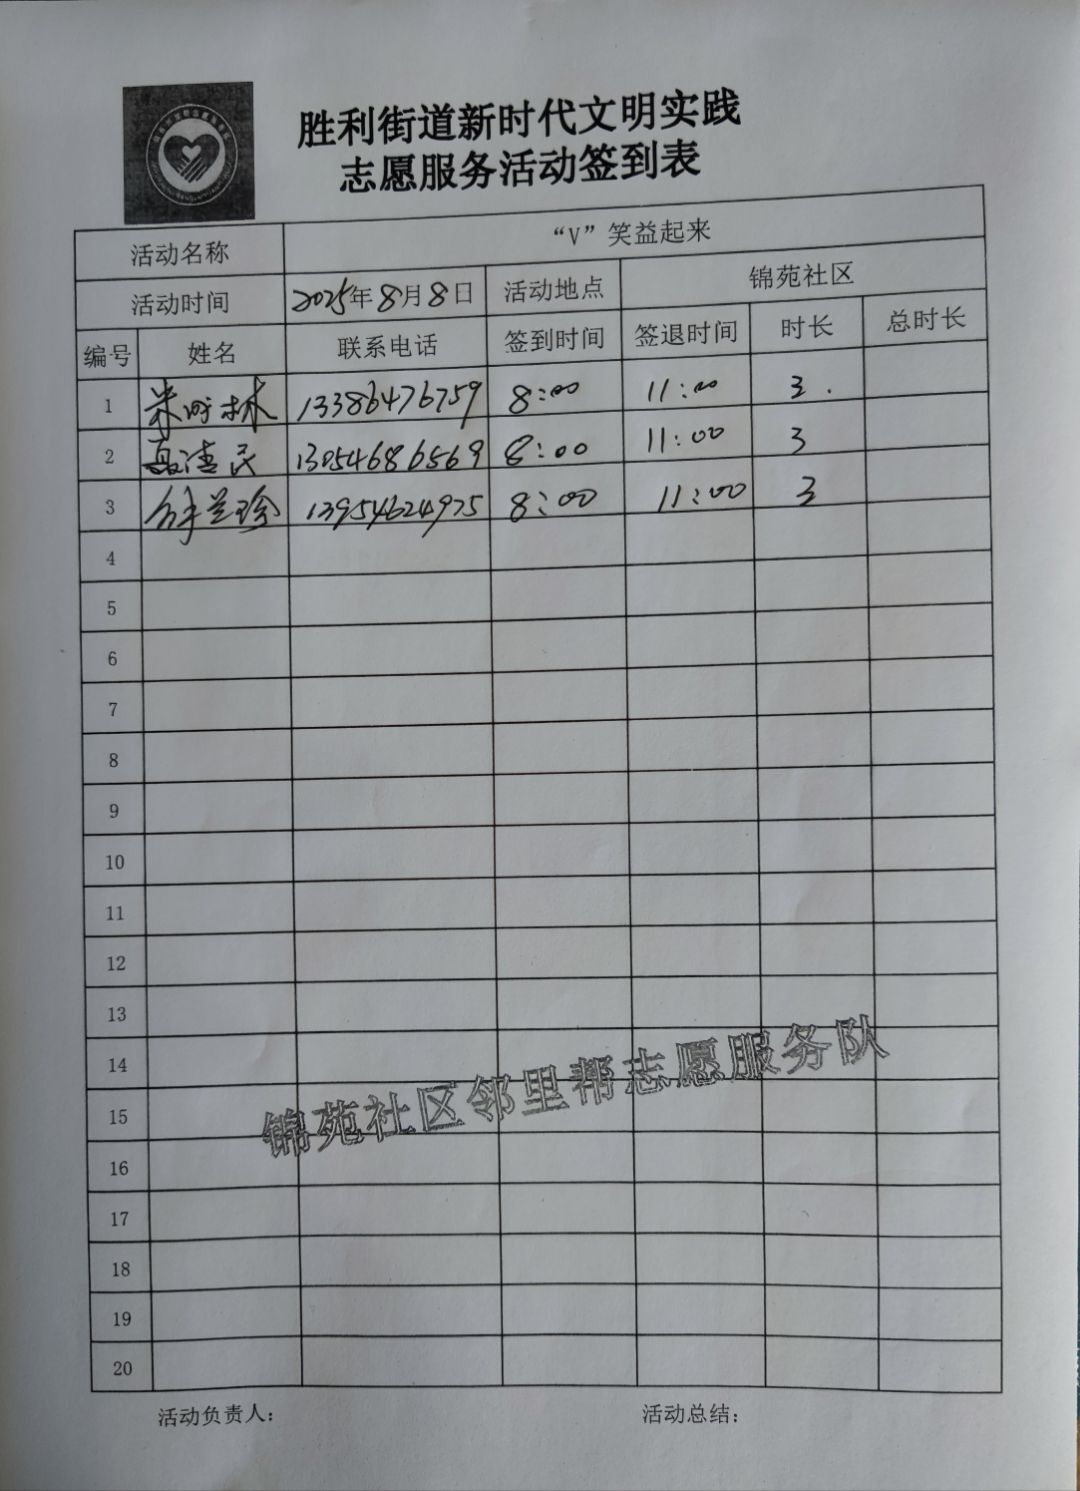 胜利街道新时代文明实践
志愿服务活动签到表
活动名称 “V”笑益起来
活动时间 2025年8月8日 活动地点 锦苑社区
编号 姓名 联系电话 签到时间 签退时间 时长 总时长
1 林 13386476759 8:00 11:00 3.
2 清民 13054686569 8:00 11:00 3
3 兰珍 13954624975 8:00 11:00 3
4
5
6
7
8
9
10
11
12
13
14
15
16
17
18
19
20
锦苑社区邻里帮志愿服务队
活动负责人: 活动总结: